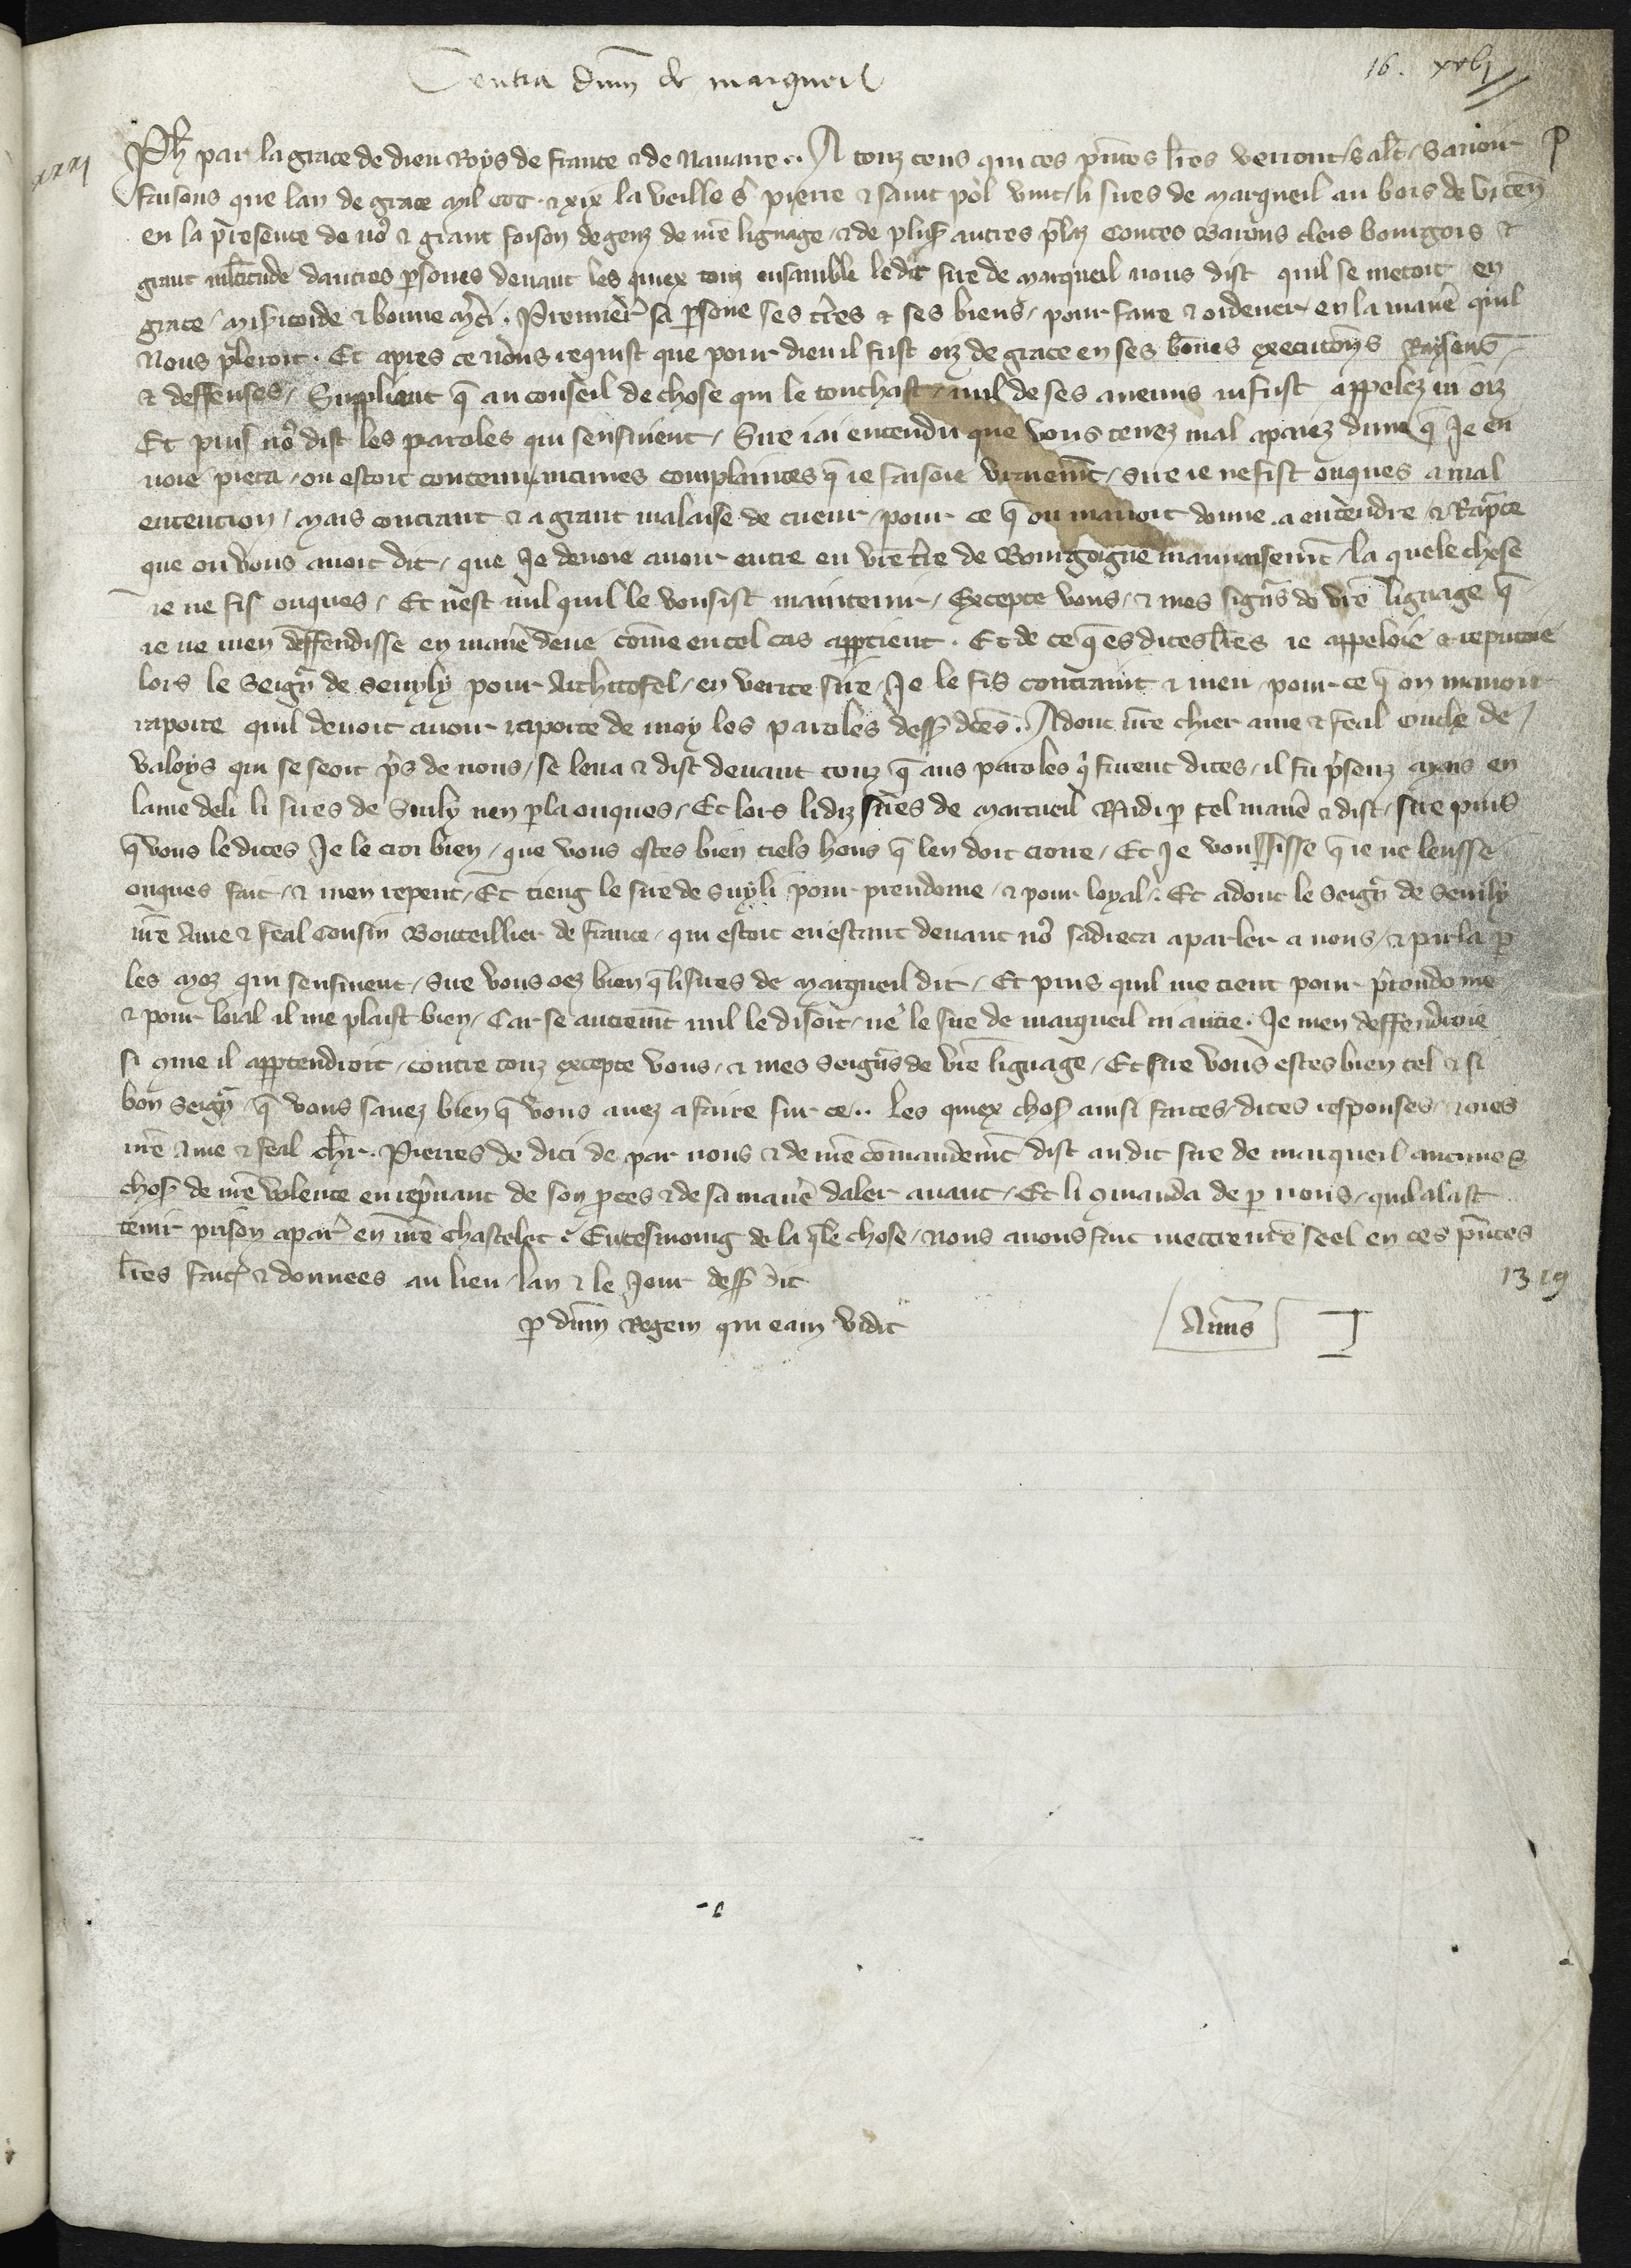 Contra dnm de marqueil
16. xvbj
xxxj
Ph par la grace de dieu Roys de france et de Nauarre .. A touz ceus qui ces pntes lres verront, salt, Sauoir P
faisons que lan de grace mil CCC et xix la veille s pierre et saint pol vint li sires de Marqueil au bois de vicen
en la presence de nos et grant foison de genz de nre lignage, et de plus autres plaz Contes Barons clers bourgois et
grant mltitude dautres psones deuant les quex touz ensamble ledit sire de Marqueil nous dist quil se metoit en
grace, misicorde et bonne mci. Premier sa psone ses tres et ses biens, pour faire et ordener en la manie quil
Nous pleroit. Et apres ce nous requist que pour dieu il fust oiz de grace en ses bones Raysons
et deffenses, Suppliant q au conseil de chose qui le touchast, nul de ses anemis ni fust appelez ni oiz
Et puis nos dist les paroles qui sensiuent, Sire iai entendu que vous tenez mal apaiez dune q Je en
uoie pieca, ou estoit contenu aucunes complaintes q ie faisoie vraiemt, sire ie ne fist onques a mal
entencion, Mais contraint et a grant malaise de cueur, pour ce q on mauoit donne a entendre et Rapte
que on vous auoit dit, que Je deuoie auoir entre en vre tre de Bourgoigne mauuaisemt, la quele chose
ie ne fis onques, Et nest nul quil le vousist maintenir, Excepte vous, et mes signrs de vre lignage q
ie ne men deffendisse en manie deue come en tel cas apptient. Et de ce q es dites lres ie appeloie et reputoie
lors le Seignr de seuyly pour Achitofel, en verite sire, Je le fis contraint et meu, pour ce q on mauoit
raporte quil deuoit auoir raporte de moy les paroles dess dces. Adont nre chier ame et feal oncle de
valoys qui se seoit ps de nous, se leua et dist deuant touz q aus paroles q furent dites, il fu psenz Mes en
lame de li li sires de Suily nen pla onques, Et lors lidiz sires de Marcueil Rndi p tel manie et dist, sire puis
q vous le dites Je le croi bien, que vous estes bien tiels hons q len doit croire, Et Je vousissse q ie ne leusse
onques fait, et men repent, Et tieng le sire de Suyli pour preudome, et pour loyal. Et adont le Seignr de Seuily
nre Ame et feal Cousin Bouteillier de france, qui estoit en estant deuant nos sadreca a parler a nous, et parla p
les moz qui sensiuent, Sire vous oez bien q li sires de Marqueil dit, Et puis quil me tient pour preudome
et pour loial il me plaist bien, Car se autremt nul le disoit, ne le sire de marqueil ni autre. Je men deffendroie
si qme il apptendroit, contre touz excepte vous, et mes Seignrs de vre lignage, Et sire vous estes bien tel et si
bon Seignr q vous sauez bien q vous auez a faire sur ce .. les quex chos ainsi faites, dites responses, et oies
nre Ame et feal chlr. Pierres de dici de par nous et de nre comandemt dist au dit sire de marqueil aucunes
chos de nre volente en repnant de son pces et de sa manie daler auant, Et li qmanda de p nous, quil alast
tenir prison a par en nre Chastelet. En tesmoing de la qle chose, nous auons fait mettre nre seel en ces pntes
lres fait et donnees au lieu, lan et le Jour dess dit 1319
p dnm Regem qui eam vidit